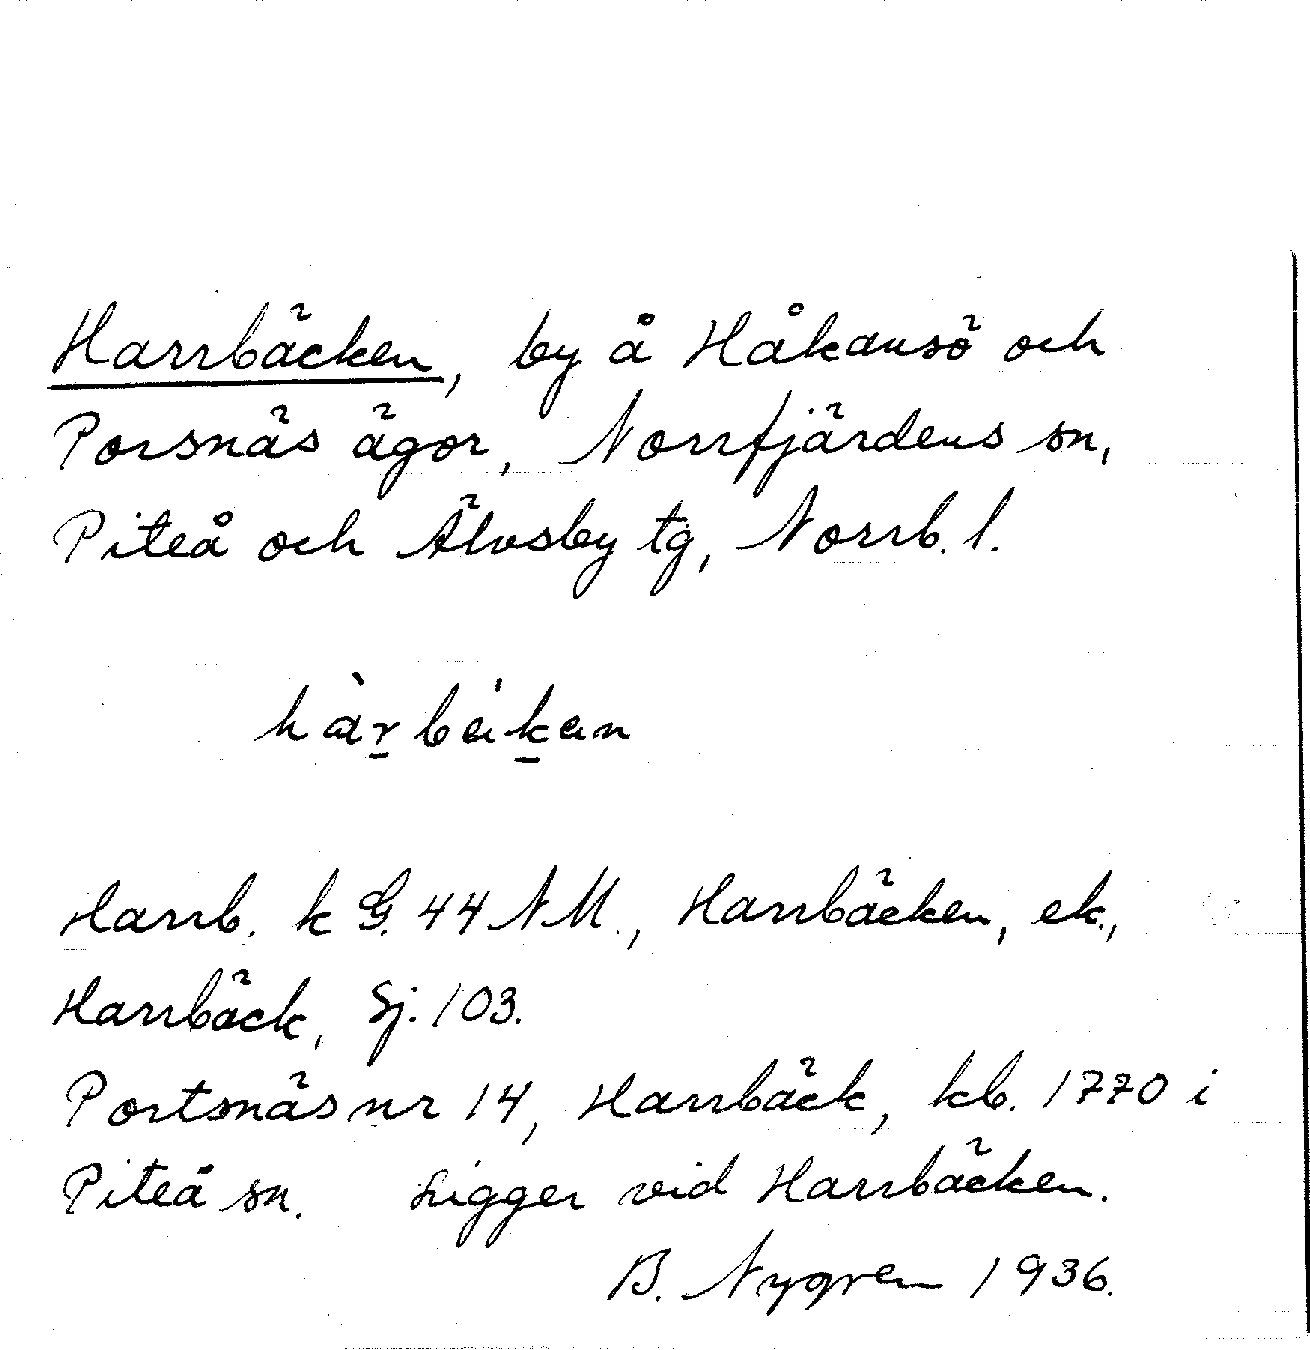 Harrbäcken, by å Håkansö och
Porsnäs ägor, Norrfjärdens sn,
Piteå och Älvsby tg, Norrb. l.
Harrb. k G. 44 NM., Harrbäcken, ek.,
Harrbäck, Sj. 103.
Portsnäs nr 14, Harrbäck, kb. 1770 i
Piteå sn. Ligger vid Harrbäcken.
B. Nygren 1936.